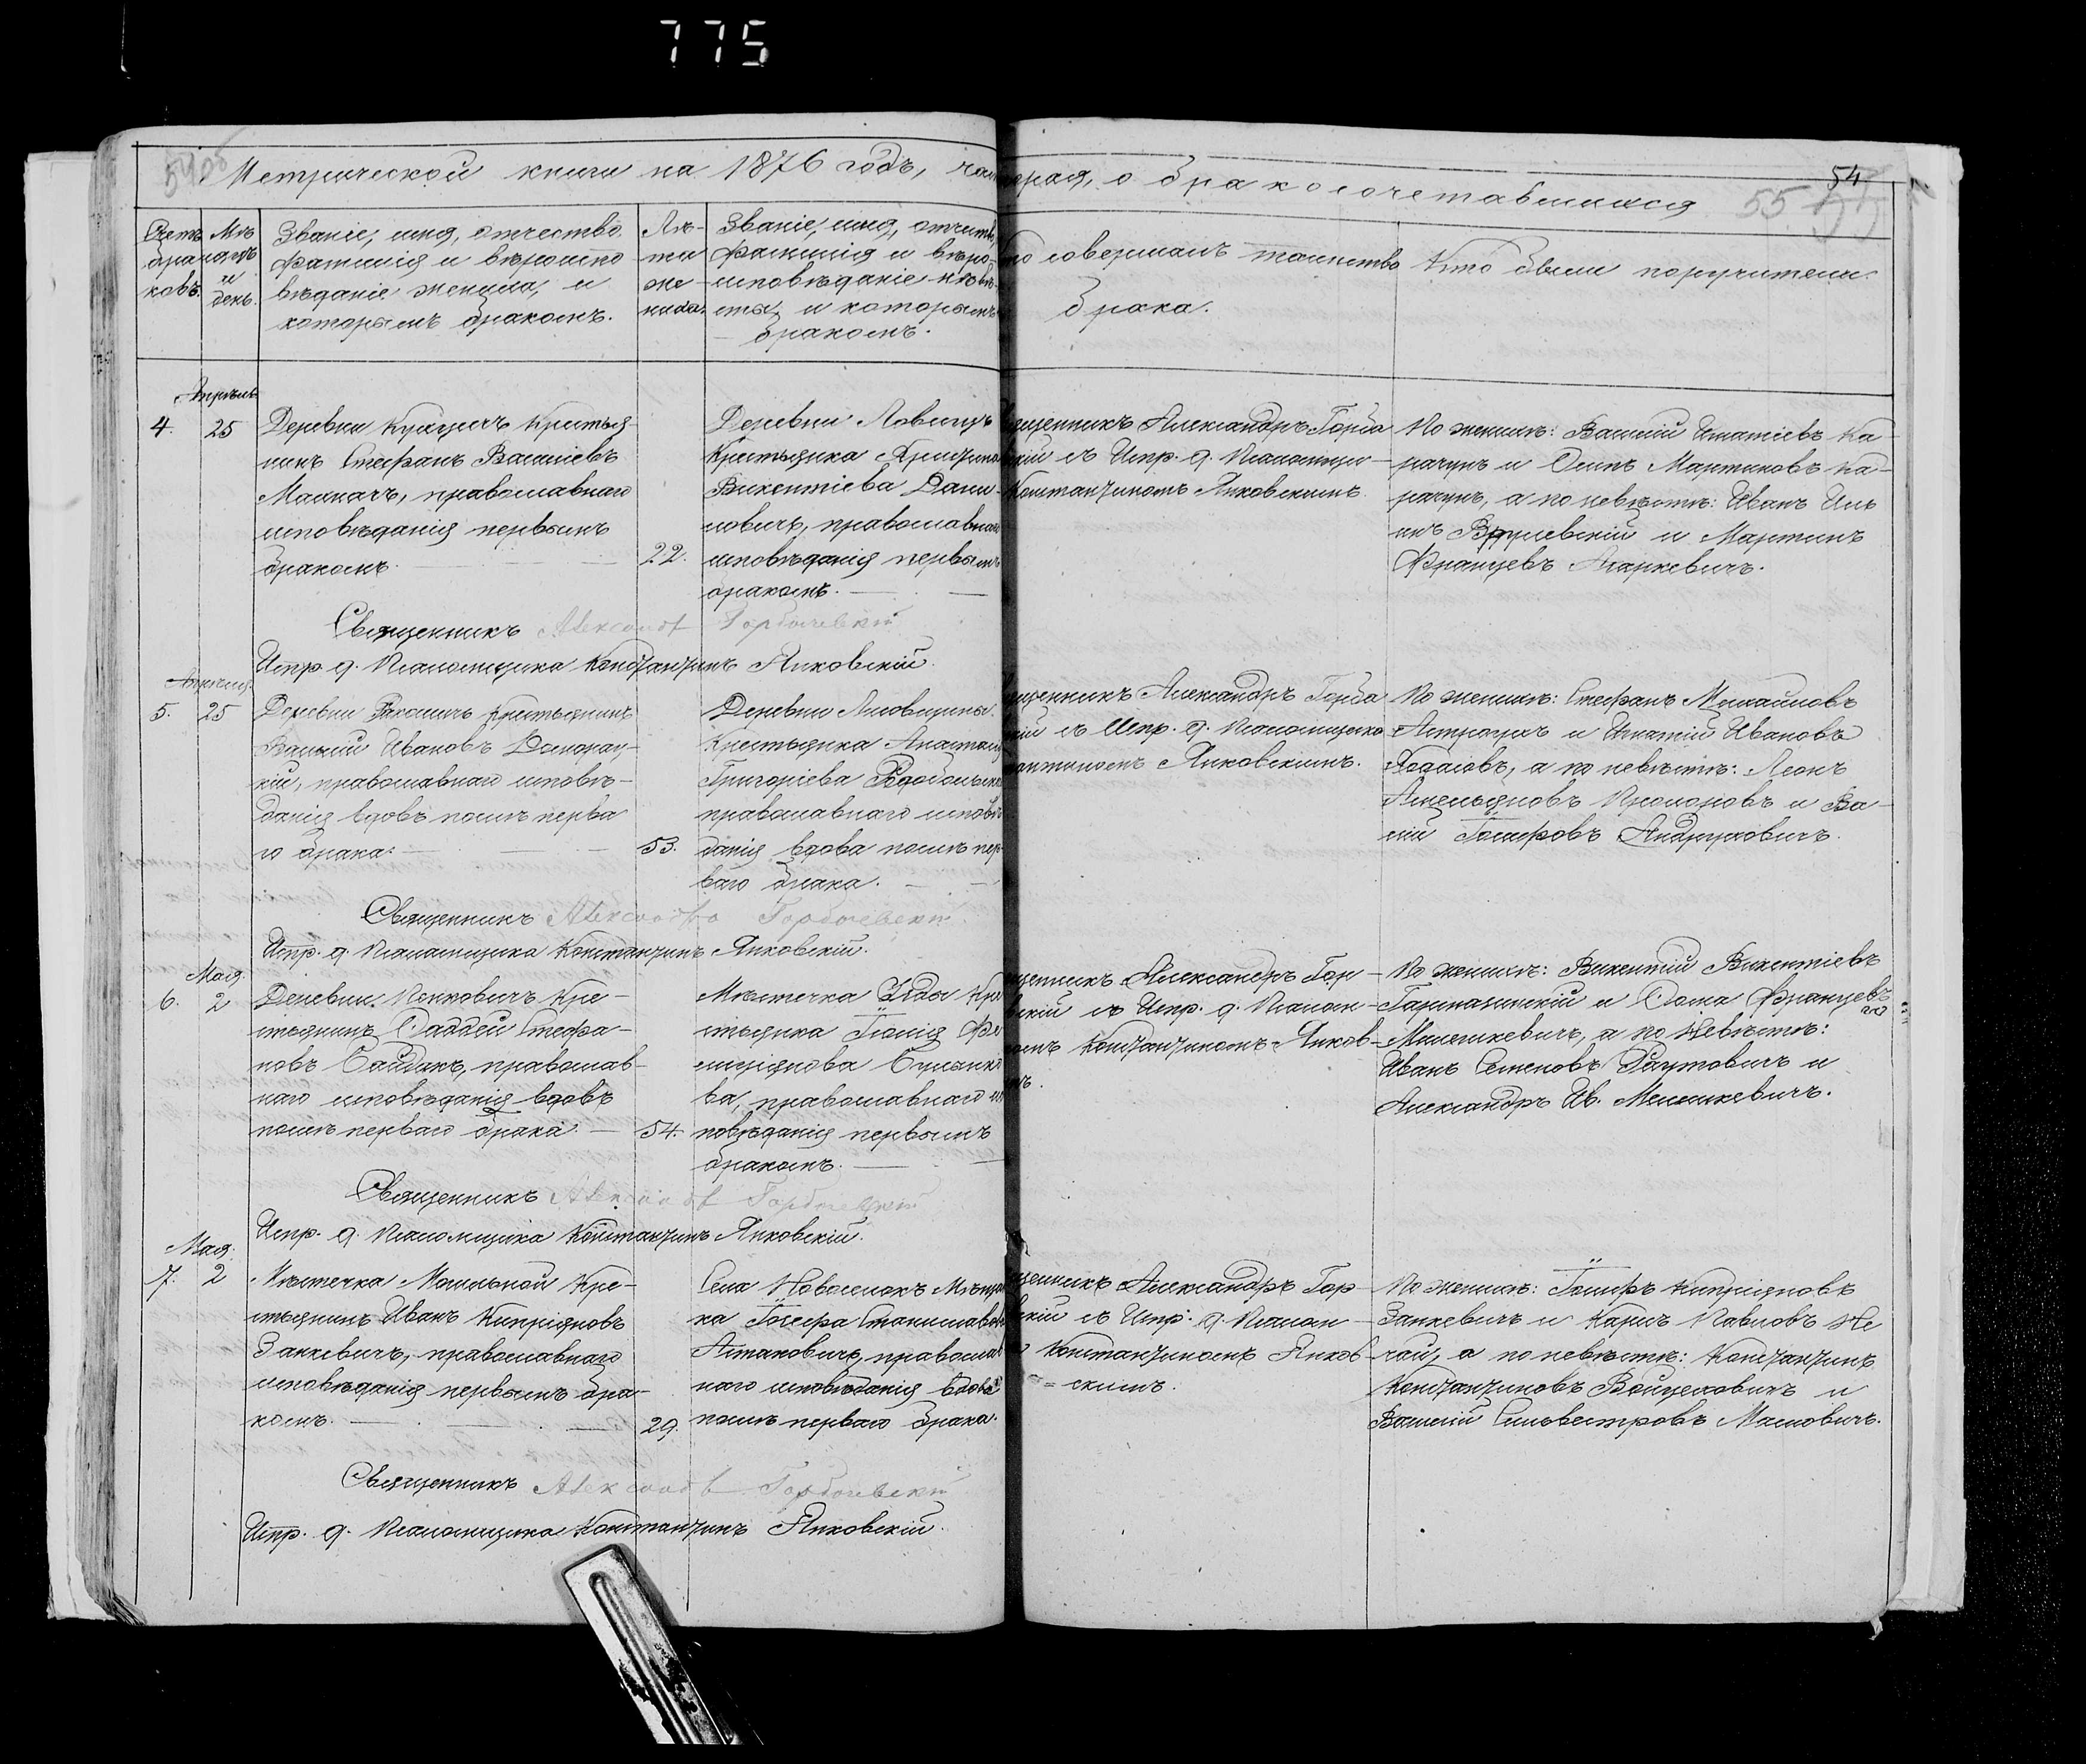 775
Метрической книги на 1876 годъ, час
торая, о бракосочетавшихся
54
55
Счетъ
бра
ковъ.
Мѣ
сяцъ
и
день.
Званіе, имя, отчество,
фамилія и вѣроиспо-
вѣданіе жениха, и
которымъ бракомъ.
Лѣ-
та
же-
ниха.
Званіе, имя, отчество,
фамилія и вѣро-
исповѣданіе невѣ-
сты, и которымъ
бракомъ.
то совершалъ таинство
брака.
Кто были поручители.
Апрѣля
4. 25
Деревни Крестья-
нинъ Стефанъ Василіевъ
православнаго
исповѣданія первымъ
бракомъ.
22.
Деревни
Крестьянка
Викентіева Дани-
ловичъ, православнаго
исповѣданія первымъ
бракомъ.
щенникъ Александръ Горба
скій съ Испр. д. Псаломщи-
Константиномъ Янковскимъ.
По женихѣ: Василій Игнатіевъ Ка-
рачунъ и Осипъ Мартиновъ Ка-
рачунъ, а по невѣстѣ: Иванъ Иль
инъ и Мартинъ
Францевъ Маркевичъ.
Священникъ Александръ Горбачевскій
Испр. д. Псаломщика Константинъ Янковскій.
Апрѣля
5. 25
Деревни крестьянинъ
Василій Ивановъ
кій, православнаго исповѣ-
данія вдовъ послѣ перва
го брака.
53.
Деревни
Крестьянка Анастасія
Григоріева
православнаго исповѣ
данія вдова послѣ пер-
ваго брака.
щенникъ Александръ Горба
кій съ Испр. д. Псаломщика
Янковскимъ.
По женихѣ: Стефанъ Михайловъ
и Игнатій Ивановъ
а по невѣстѣ: Леонъ
Амельяновъ и Ва-
лій Іосифовъ Андруховичъ.
Священникъ Александръ Горбачевскій
Испр. д. Псаломщика Константинъ Янковскій.
Мая
6. 2
Деревни Кре-
стьянинъ Фаддей Стефа-
новъ православ-
наго исповѣданія вдовъ
послѣ перваго брака.
54.
Мѣстечка Кре
стьянка Юлія
ва, православнаго ис
повѣданія первымъ
бракомъ.
щенникъ Александръ Гор-
вскій съ Испр. д. Псалом-
омъ Константиномъ Янков-
мъ.
По женихѣ: Викентій Викентіевъ
и Ѳома Францевъ
Мелешкевичъ, а по Невѣстѣ:
Иванъ Семеновъ и
Александръ Ив. Мелешкевичъ.
Священникъ Александръ Горбачевскій
Испр. д. Псаломщика Константинъ Янковскій.
Мая
7. 2
Мѣстечка Кре-
стьянинъ Иванъ Кипріяновъ
Занкевичъ, православнаго
исповѣданія первымъ бра-
комъ.
29.
Села Новоселокъ Мѣщан
ка Іосифа Станиславова
православ
наго исповѣданія вдова
послѣ перваго брака.
щенникъ Александръ Гор-
скій съ Испр. д. Псалом-
Константиномъ Янков-
скимъ.
По женихѣ: Іосифъ Кипріяновъ
Занкевичъ и Карпъ Павловъ Не
чай, а по невѣстѣ: Константинъ
Константиновъ Войцеховичъ и
Василій Сильвестровъ Масловичъ.
Священникъ Александръ Горбачевскій
Испр. д. Псаломщика Константинъ Янковскій.